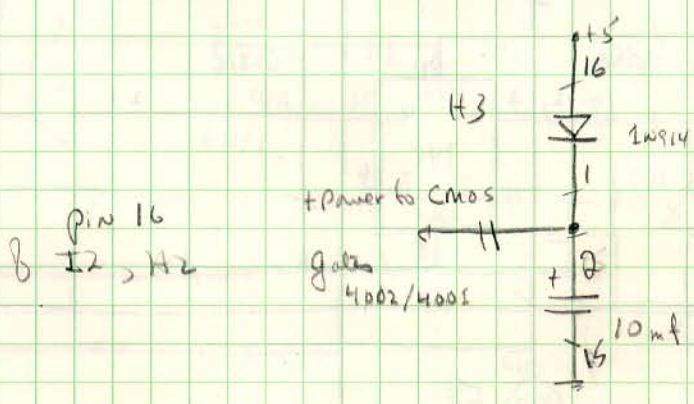 +5
16
H3
1N914
1
+ Power to CMOS
pin 16
I2, H2
gates
2
4002/4001
+
10mf
15